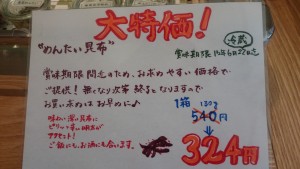 大特価!
冷蔵
"めんたい昆布"
賞味期限 16年6月22迄
賞味期限 間近のため、お求めやすい価格で
ご提供! 無くなり次第 終了となりますので
お買い求めは お早めに♪
1箱 130g
540円
↓
324円
味わい深い昆布に
ピリッと辛い明太が
アクセント!
ご飯にも、お酒にも合います。